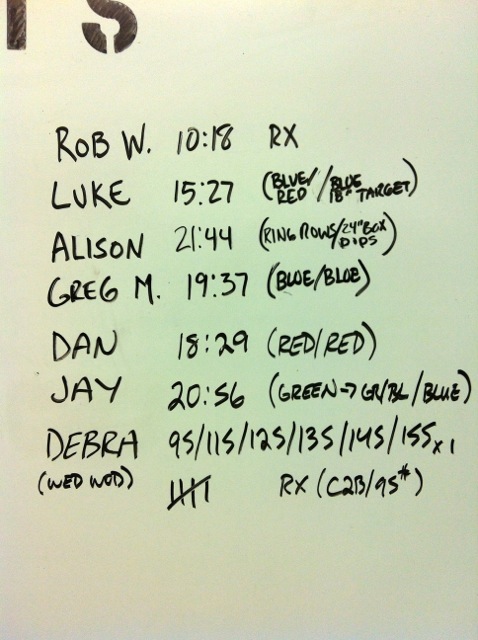 TS
ROB W. 10:18 RX
LUKE 15:27 (BLUE/RED//BLUE 18" TARGET)
ALISON 21:44 (RING ROWS/24" BOX DIPS)
GREG M. 19:37 (BLUE/BLUE)
DAN 18:29 (RED/RED)
JAY 20:56 (GREEN→GR/BL/BLUE)
DEBRA 95/115/125/135/145/155x1
(WED WOD) 𝍸 RX (C2B/95#)